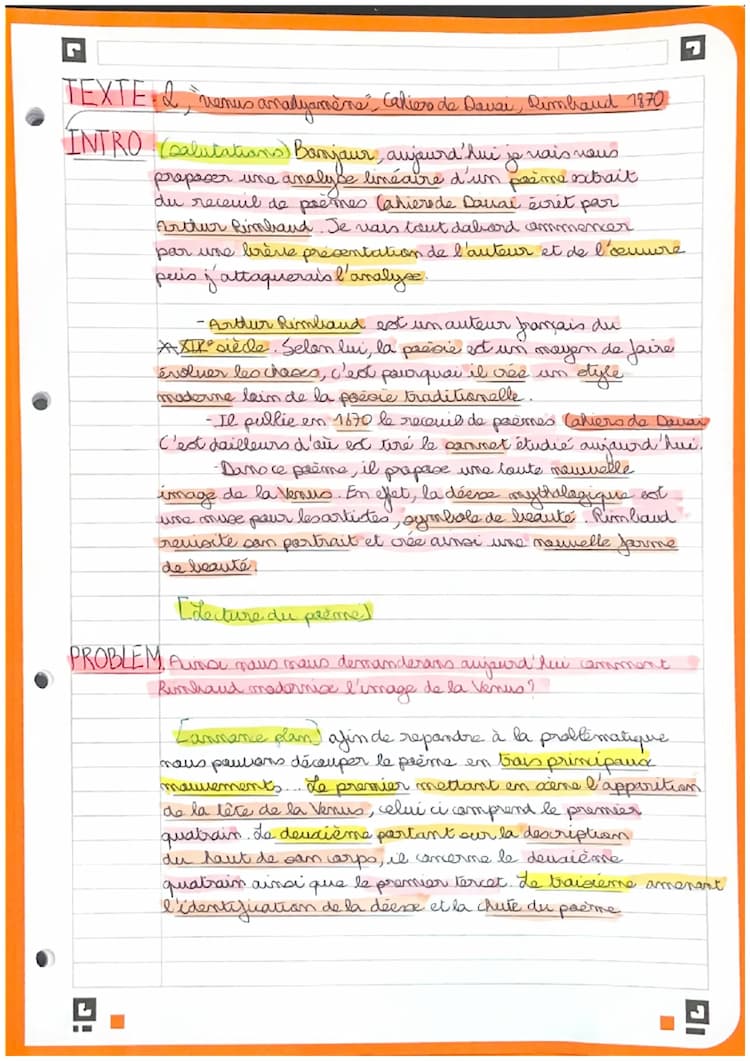 TEXTE: 2, "venus anadyomène", Cahiers de Douai, Rimbaud 1870
INTRO (salutations) Bonjour, aujourd'hui je vais vous
proposer une analyse linéaire d'un poème extrait
du receuil de poèmes Cahiers de Douai écrit par
Arthur Rimbaud. Je vais tout dabord commencer
par une brève présentation de l'auteur et de l'oeuvre
puis j'attaquerais l'analyse.
- Arthur Rimbaud est un auteur français du
XIXe siècle. Selon lui, la poésie est un moyen de faire
évoluer les choses, c'est pourquoi il crée un style
moderne loin de la poésie traditionelle.
- Il publie en 1870 le receuil de poèmes Cahiers de Douai
C'est dailleurs d'où est tiré le sonnet étudié aujourd'hui.
- Dans ce poème, il propose une toute nouvelle
image de la Venus. En effet, la déesse mythologique est
une muse pour les artistes, symbole de beauté. Rimbaud
revisite son portrait et crée ainsi une nouvelle forme
de beauté.
[Lecture du poème]
PROBLEM. Ainsi nous nous demanderons aujourd'hui comment
Rimbaud modernise l'image de la Venus?
[annonce plan] afin de repondre à la problématique
nous pouvons découper le poème en trois principaux
mouvements... Le premier mettant en scène l'apparition
de la tête de la Venus, celui ci comprend le premier
quatrain. Le deuxième portant sur la description
du haut de son corps, il concerne le deuxième
quatrain ainsi que le premier tercet. Le troisième amenant
l'identification de la déesse et la chute du poème